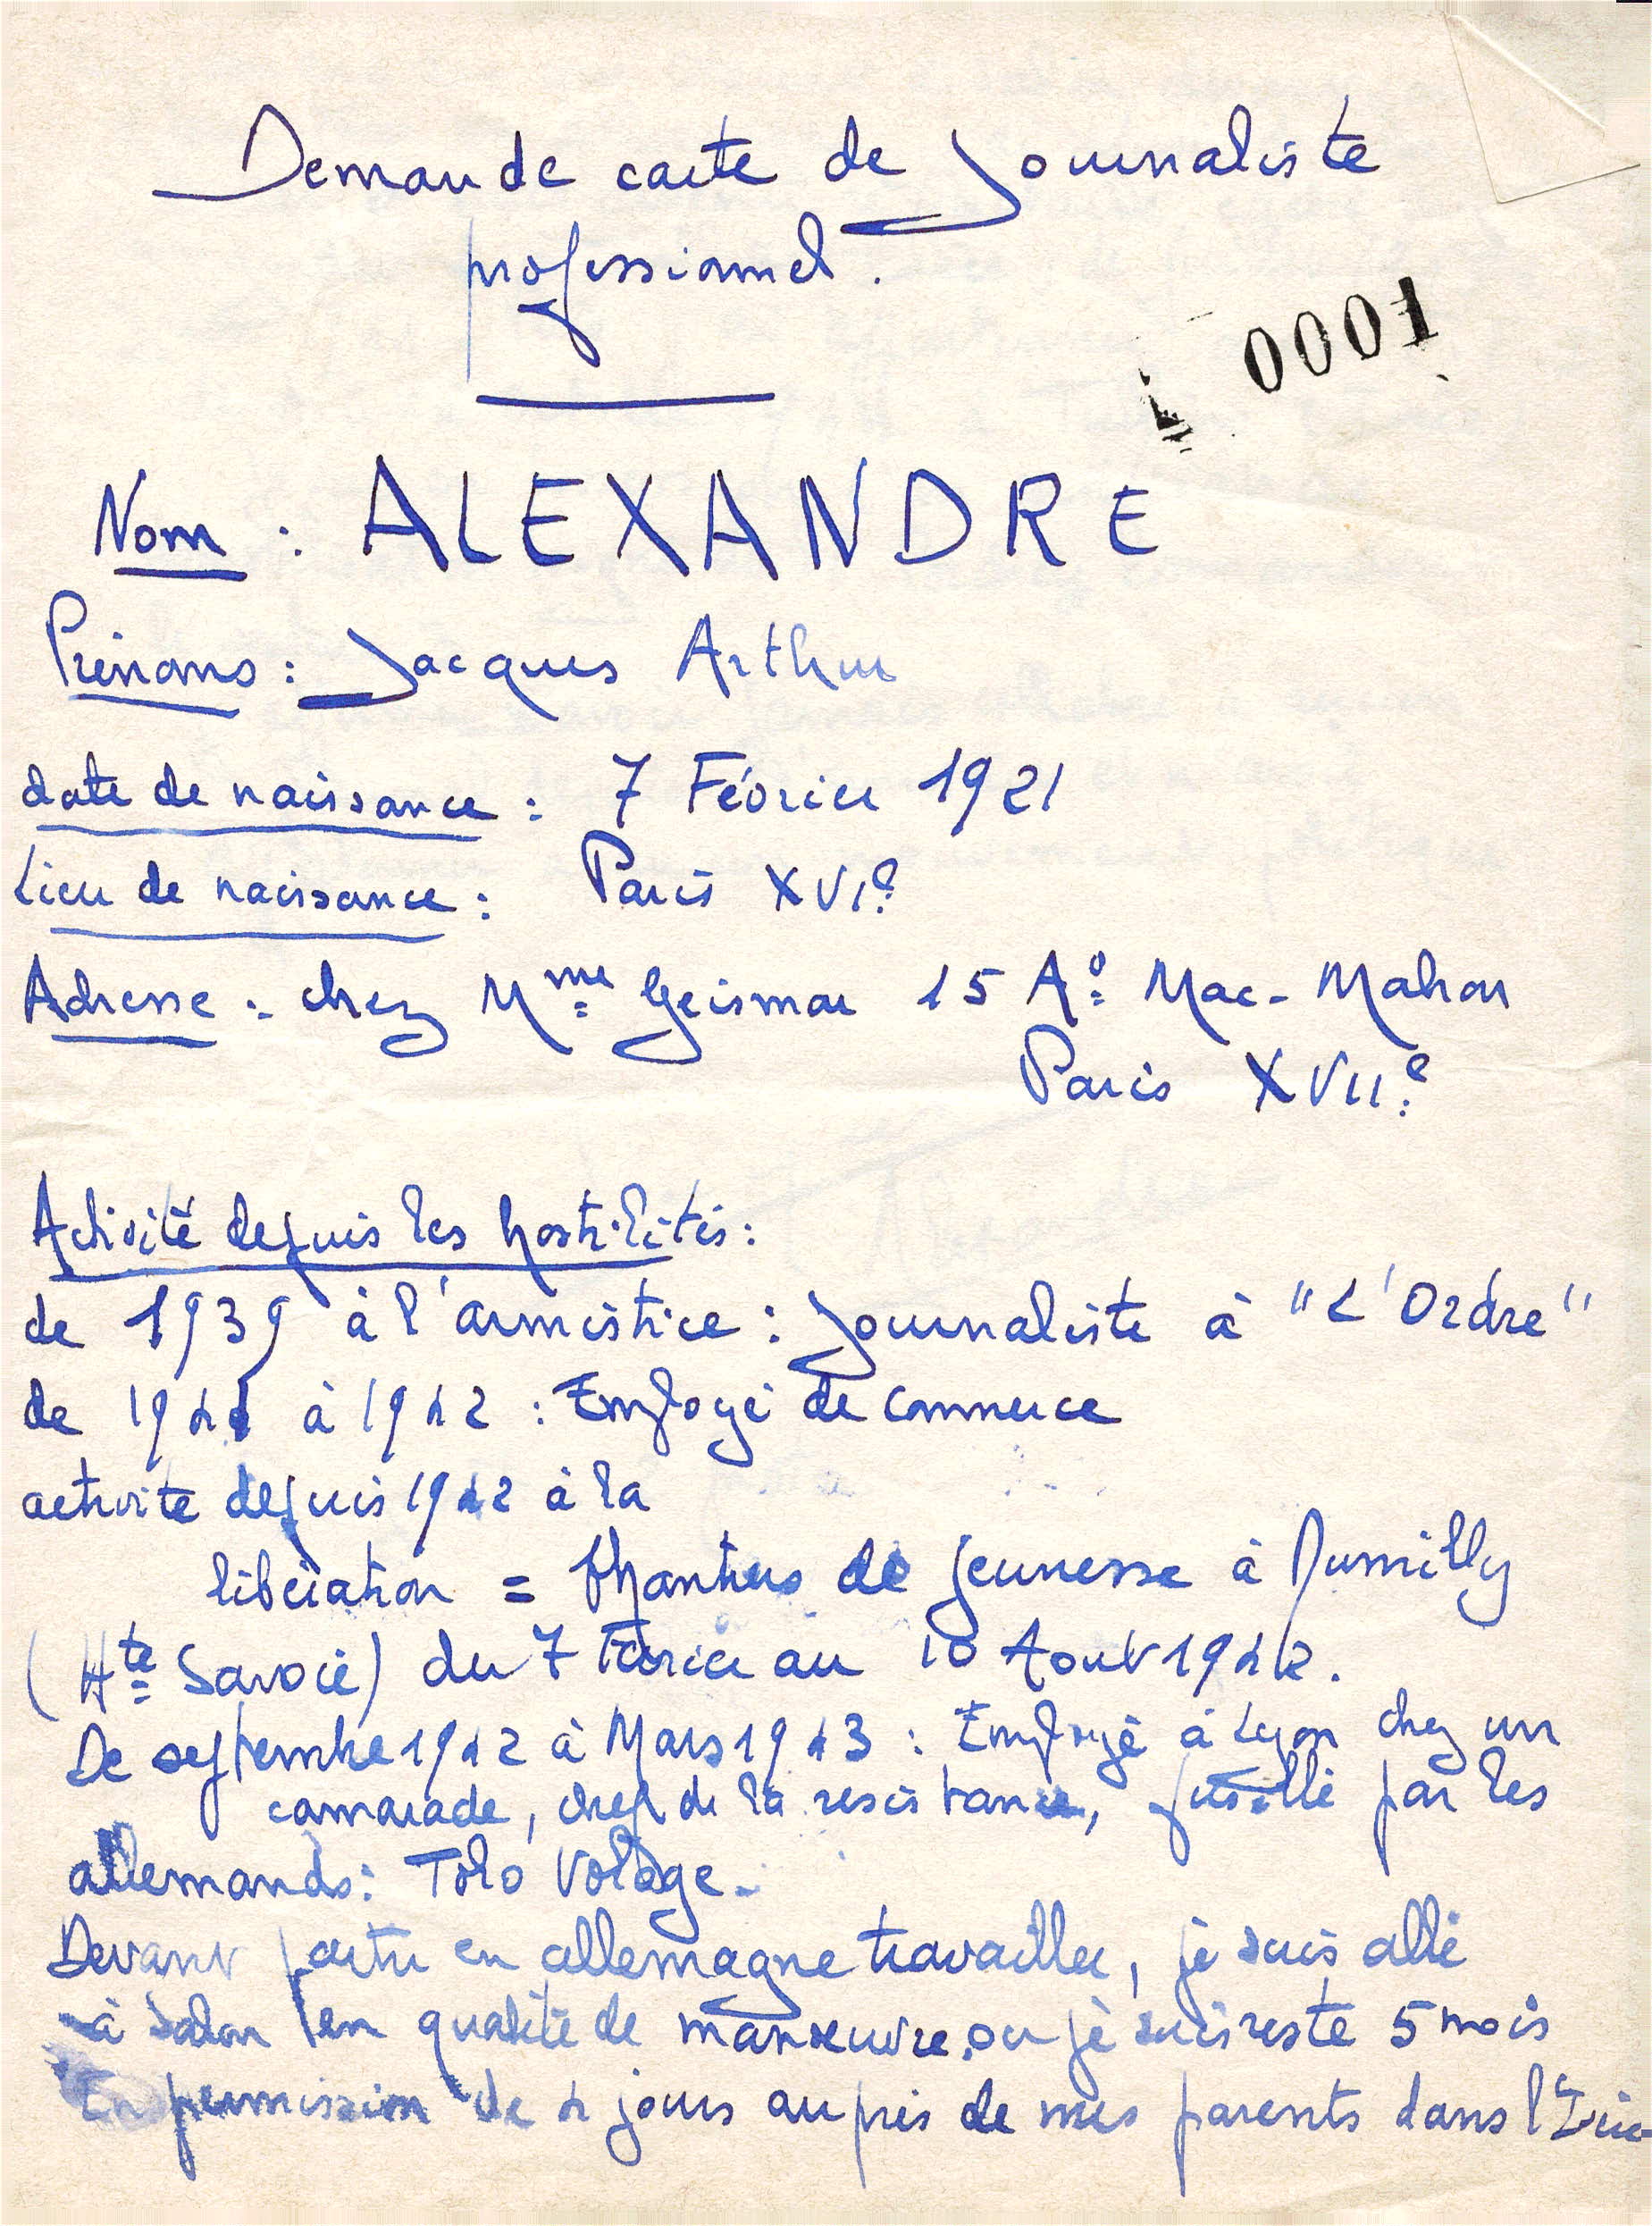 Demande carte de Journaliste
professionnel.
0001
Nom : ALEXANDRE
Prénoms : Jacques Arthur
date de naissance : 7 Février 1921
Lieu de naissance : Paris XVIe
Adresse : chez Mme Geismar 15 Ae Mac-Mahon
Paris XVIIe
Activité depuis les hostilités :
de 1939 à l'armistice : Journaliste à "L'Ordre"
de 1941 à 1942 : Employé de commerce
activité depuis 1942 à la
libération = Chantiers de jeunesse à Rumilly
(Hte Savoie) du 7 Février au 10 Aout 1942.
De septembre 1942 à Mars 1943 : Employé à Lyon chez un
camarade, chef de la resistance, fusillé par les
allemands : Toto Volage.
Devant partir en allemagne travailler, je suis allé
à Salon en qualité de manoeuvre ou je suis resté 5 mois
En permission de 4 jours auprès de mes parents dans l'Isère